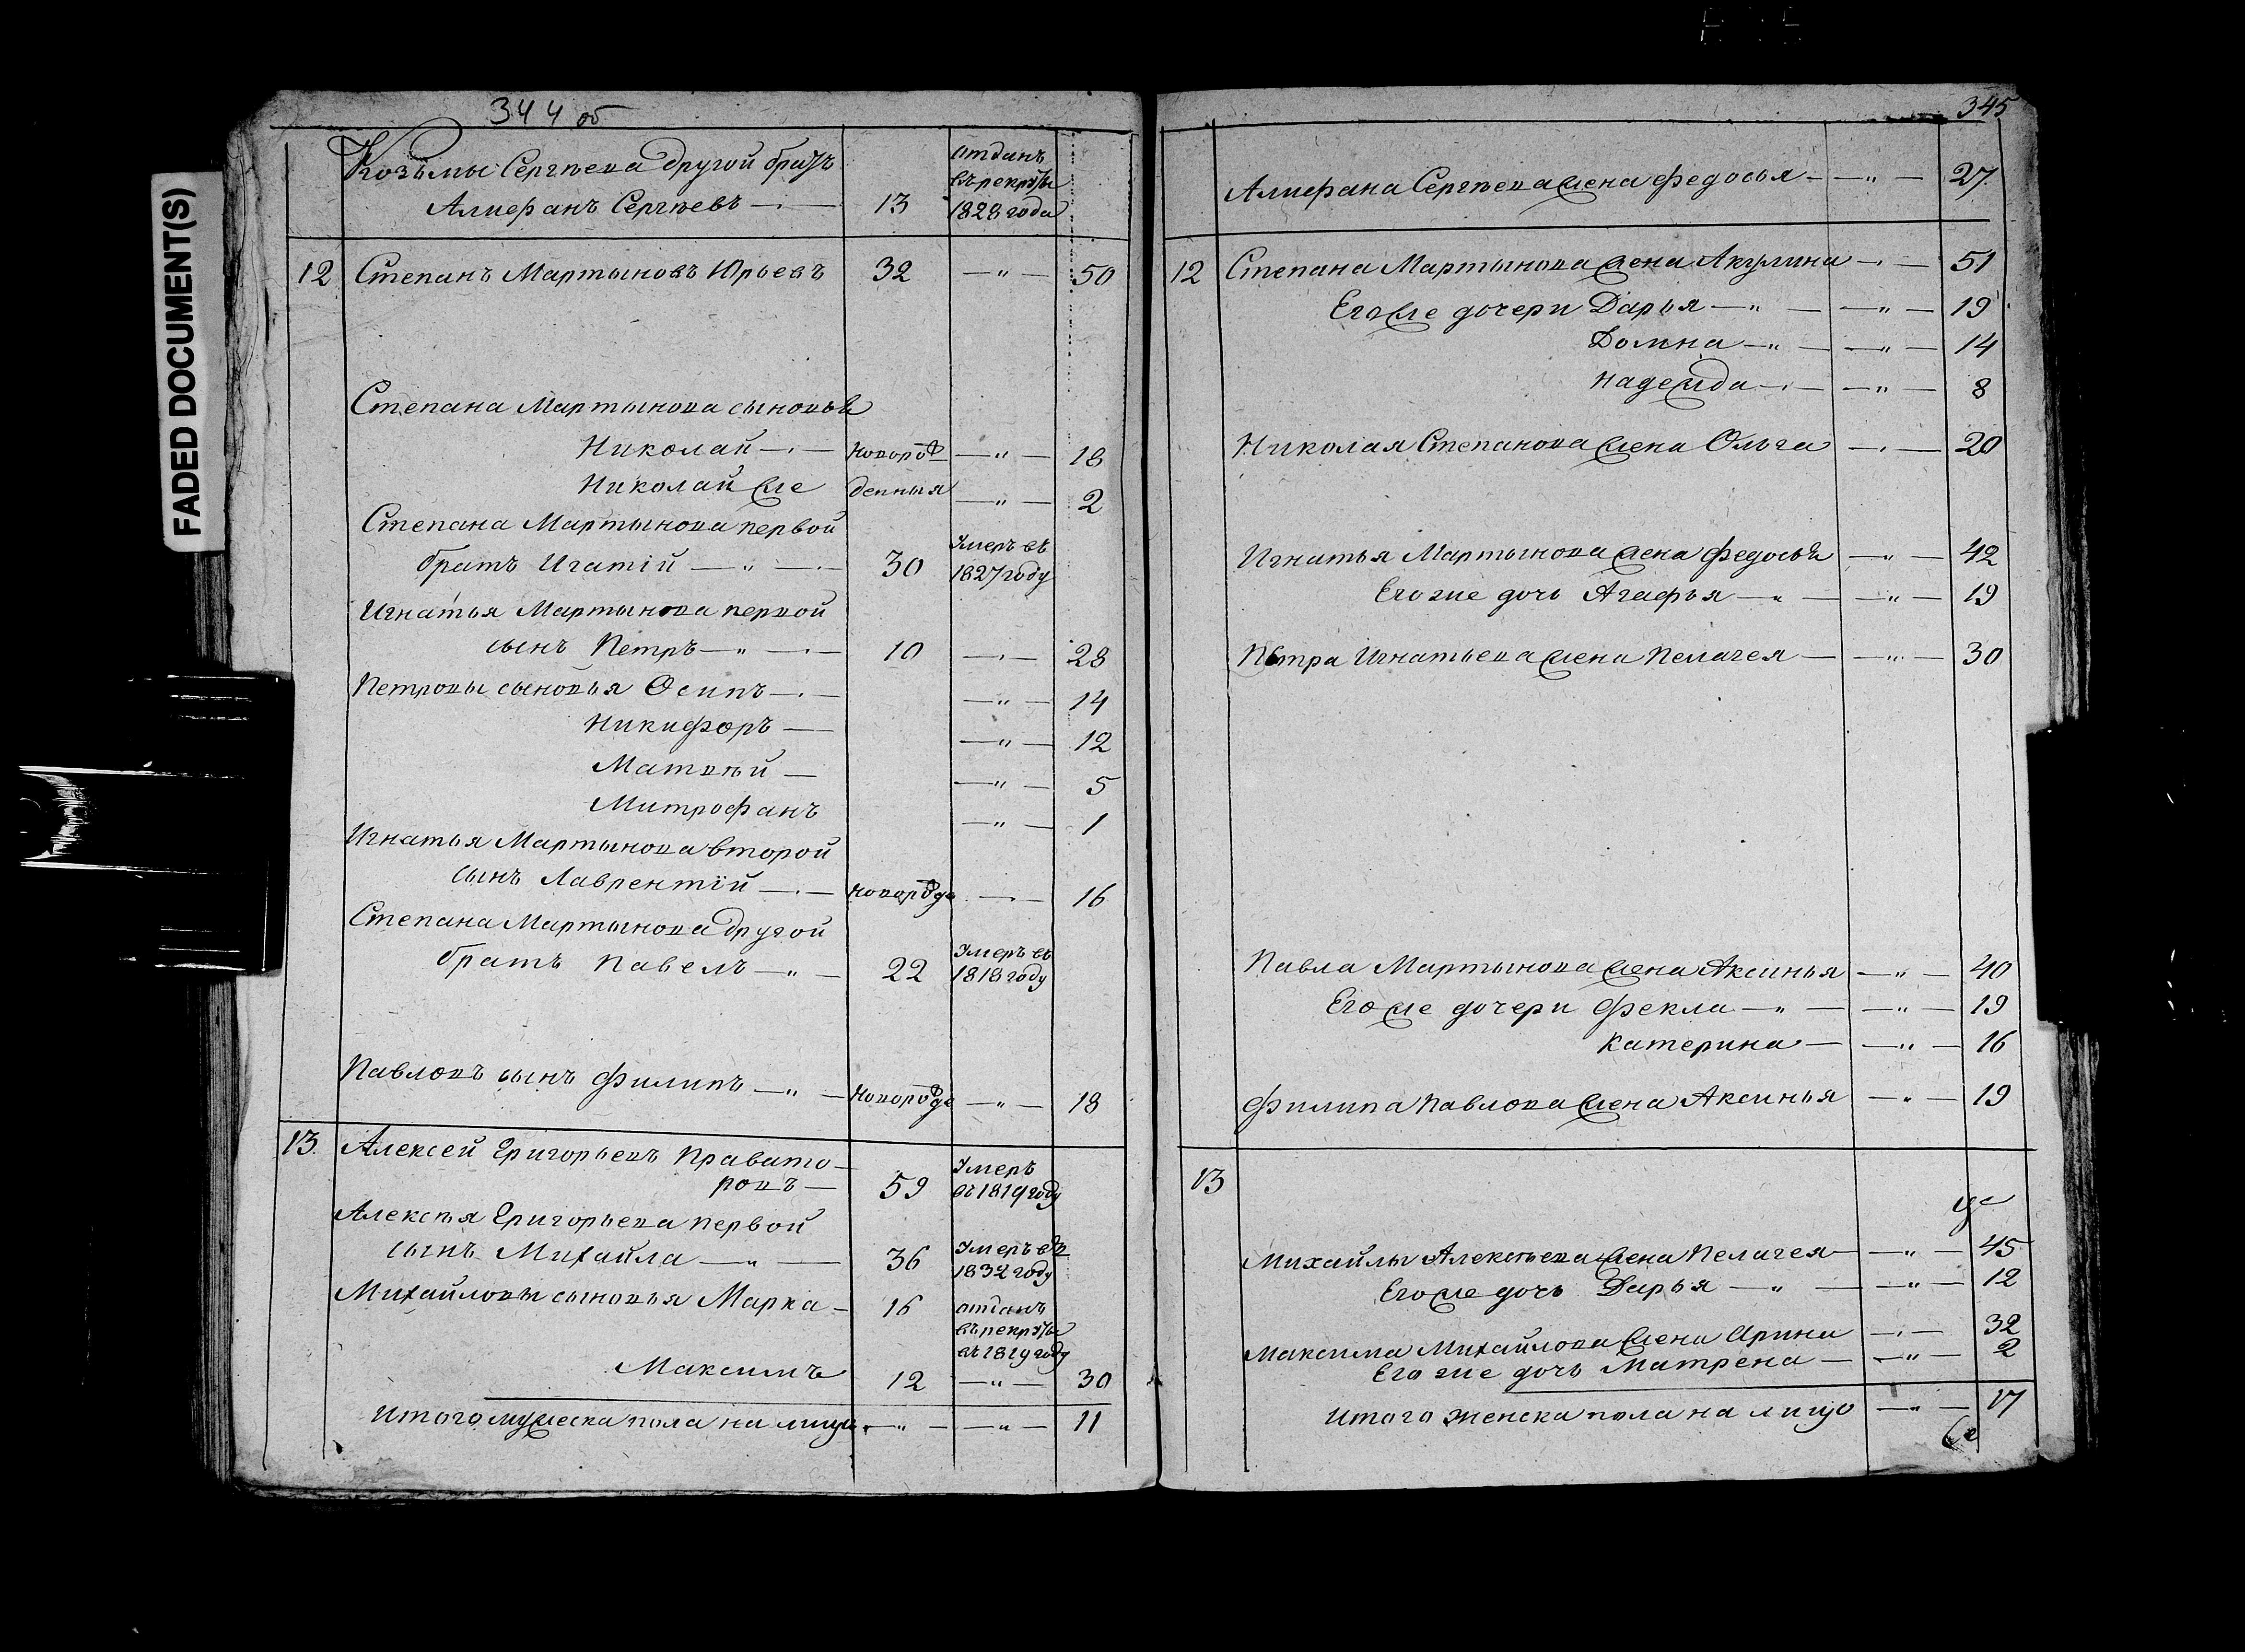 FADED DOCUMENT(S)
344 об
Козьмы Сергѣева другой братъ
Алиѳанъ Сергѣевъ 13
отданъ
въ рекруты
1828 года
12 Степанъ Мартыновъ Юрьевъ 32 50
Степана Мартынова сыновья
Николай новорож 18
Николай же денныя 2
Степана Мартынова первой
братъ Игатій 30
Умеръ въ
1827 году
Игнатья Мартынова первой
сынъ Петръ 10 28
Петровы сыновья Осипъ 14
Никифоръ 12
Матвѣй 5
Митрофанъ 1
Игнатья Мартынова второй
сынъ Лаврентій новорожде 16
Степана Мартынова другой
братъ Павелъ 22
Умеръ въ
1818 году
Павловъ сынъ Филипъ новорожде 18
13 Алексей Григорьевъ Правато-
ровъ 59
Умеръ
въ 1819 году
Алексѣя Григорьева первой
сынъ Михайла 36
Умеръ въ
1832 году
Михайловы сыновья Марка 16
отданъ
въ рекруты
въ 1819 году
Максимъ 12 30
Итого мужеска пола на лицо 11
345
Алифана Сергѣева жена Федосья 27
12 Степана Мартынова жена Акулина 51
Его же дочери Дарья 19
Домна 14
Надежда 8
Николая Степанова жена Ольга 20
Игнатья Мартынова жена Федосья 42
Его же дочь Агафья 19
Петра Игнатьева жена Пелагея 30
Павла Мартынова жена Аксинья 40
Его же дочери Фекла 19
Катерина 16
Филипа Павлова жена Аксинья 19
13
Михайлы Алексѣева жена Пелагея 45
Его же дочь Дарья 12
Максима Михайлова жена Арина 32
Его же дочь Матрена 2
Итого женска пола на лицо 17